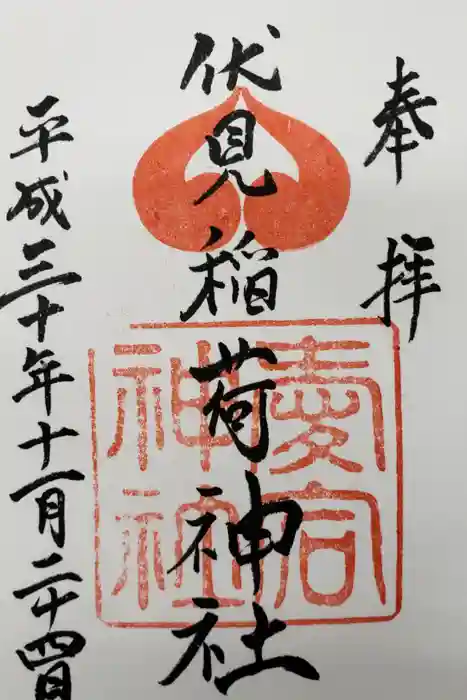 奉拝
伏見稲荷神社
愛宕神社
平成三十年十一月二十四日